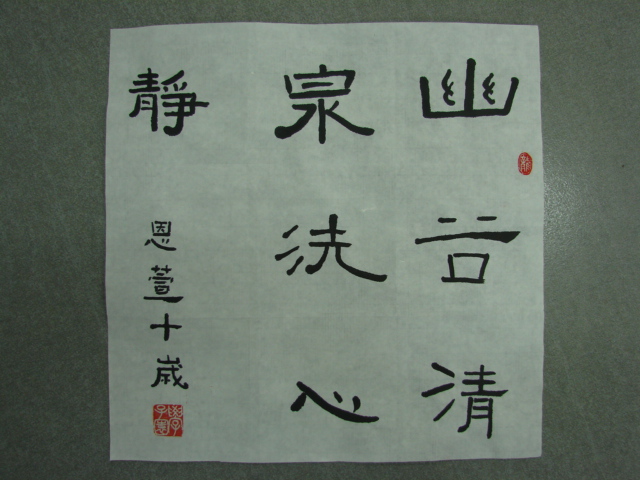 幽谷清
泉洗心
靜
恩萱十歲